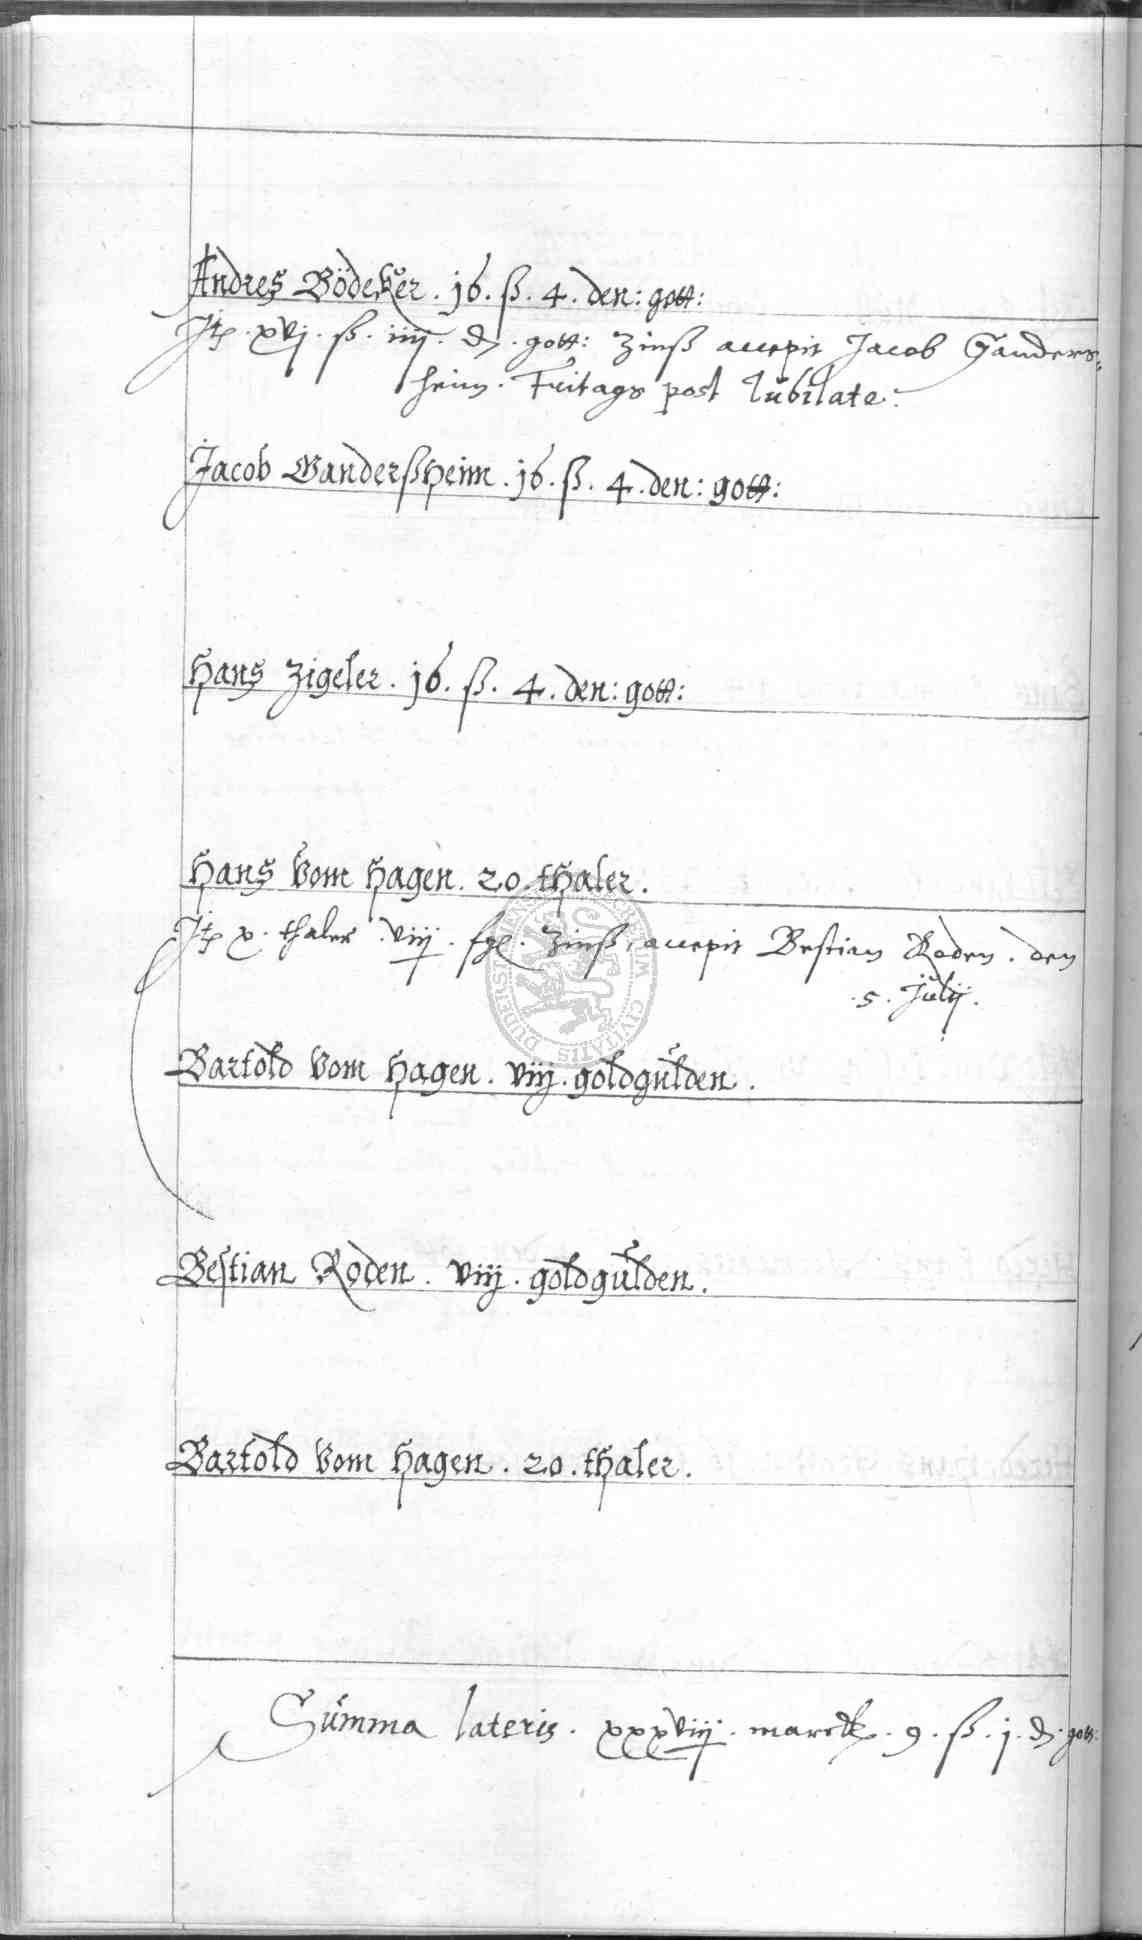 Andres Bödeker . 16 . ß . 4 . den: gott:
Itē . xvj . ß . iiij . d . gott: Zinß accepit Jacob Ganders=
heim . Freitags post Iubilate.
Jacob Gandersheim . 16 . ß . 4 . den: gott:
Hans Zigeler . 16 . ß . 4 . den: gott:
Hans vom Hagen . 20 . thaler .
Itē x . thaler . viij . sgl . Zinß, accepit Bestian Roden . den
. 5 . Julij .
Bartold vom Hagen . viij . goldgulden .
Bestian Roden . viij . goldgulden .
Bartold vom Hagen . 20 . thaler .
Summa lateris . xxxviij . marck . 9 . ß . j . d . gott: